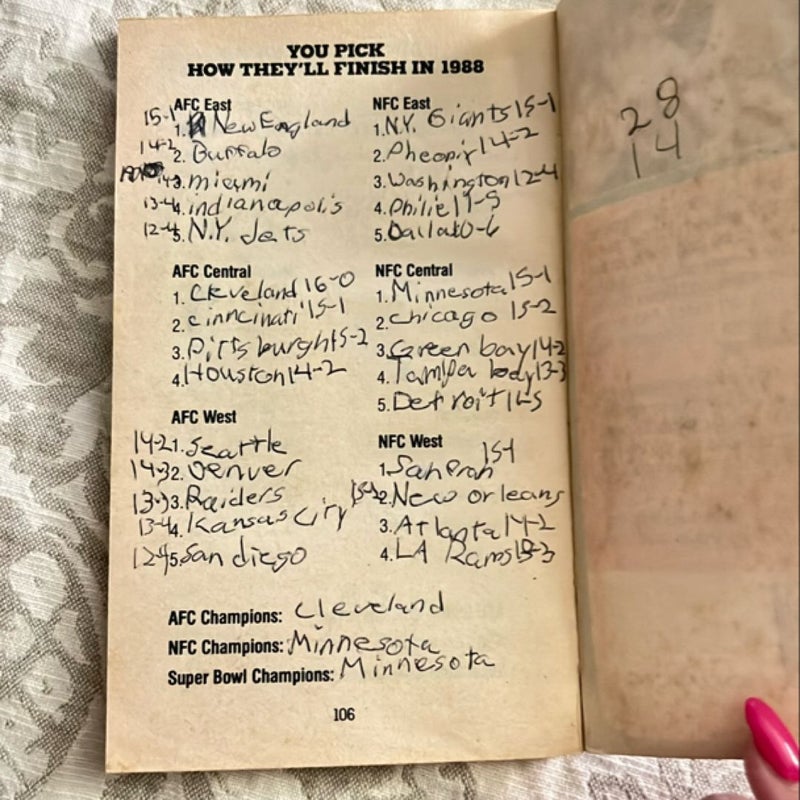 YOU PICK
HOW THEY'LL FINISH IN 1988
AFC East
15-1 1. New England
14-2 2. Buffalo
3. miami
13-4 4. indianapolis
12-4 5. N.Y. Jets
AFC Central
1. Cleveland 16-0
2. cinncinati 15-1
3. Pittsburgh 15-2
4. Houston 14-2
AFC West
14-2 1. Seattle
14-3 2. Denver
13-3 3. Raiders
13-4 4. Kansas City
12-4 5. San diego
NFC East
1. N.Y. Giants 15-1
2. Pheonix 14-2
3. Washington 12-4
4. Philie 11-5
5. Dallas 10-6
NFC Central
1. Minnesota 15-1
2. chicago 15-2
3. Green bay 14-2
4. Tampa bay 13-3
5. Detroit 11-5
NFC West
1. San Fran 15-1
2. New orleans
3. Atlanta 14-2
4. LA Rams 13-3
AFC Champions: Cleveland
NFC Champions: Minnesota
Super Bowl Champions: Minnesota
106
28
14